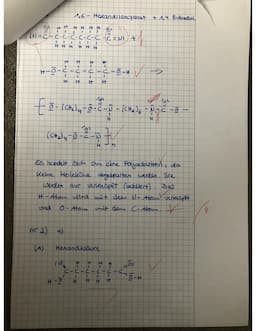 1,6 - Hexandiisocyanat + 1,4 Butandiol
H-O-C-C-C-C-O-H →
[ O-(CH₂)₄-O-C-N-(CH₂)₆-N-C-O-
(CH₂)₄-O-C-N- ]n
Es handelt sich um eine Polyaddition, da
keine Moleküle abgespalten werden. Sie
werden nur verknüpft (addiert). Das
H-Atom wird mit dem N-Atom verknüpft
und O-Atom mit dem C-Atom.
Nr 2) a)
(A) Hexandisäure